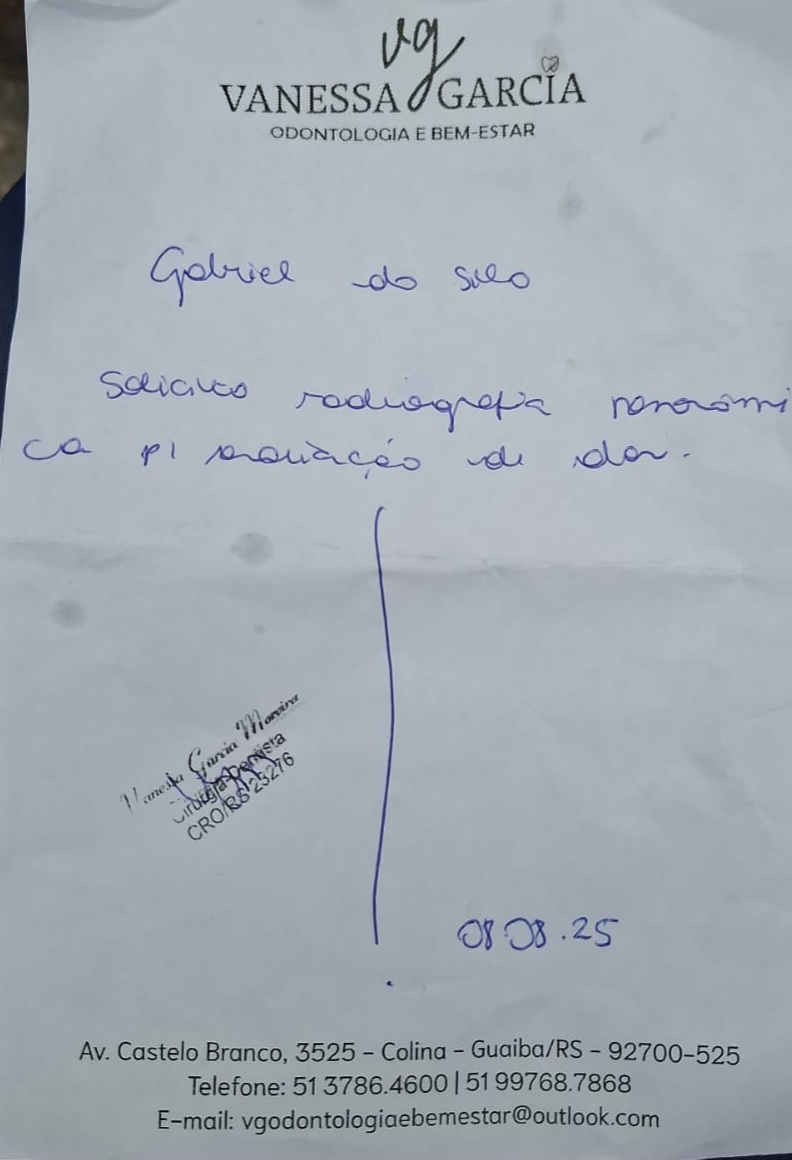 vg
VANESSA GARCIA
ODONTOLOGIA E BEM-ESTAR
Gabriel da Silva
Solicito radiografia panorâmi
ca p/ avaliação de dor.
Vanessa Garcia Moreira
Cirurgiã-Dentista
CRO/RS 25276
08 08.25
Av. Castelo Branco, 3525 – Colina – Guaiba/RS – 92700-525
Telefone: 51 3786.4600 | 51 99768.7868
E-mail: vgodontologiaebemestar@outlook.com